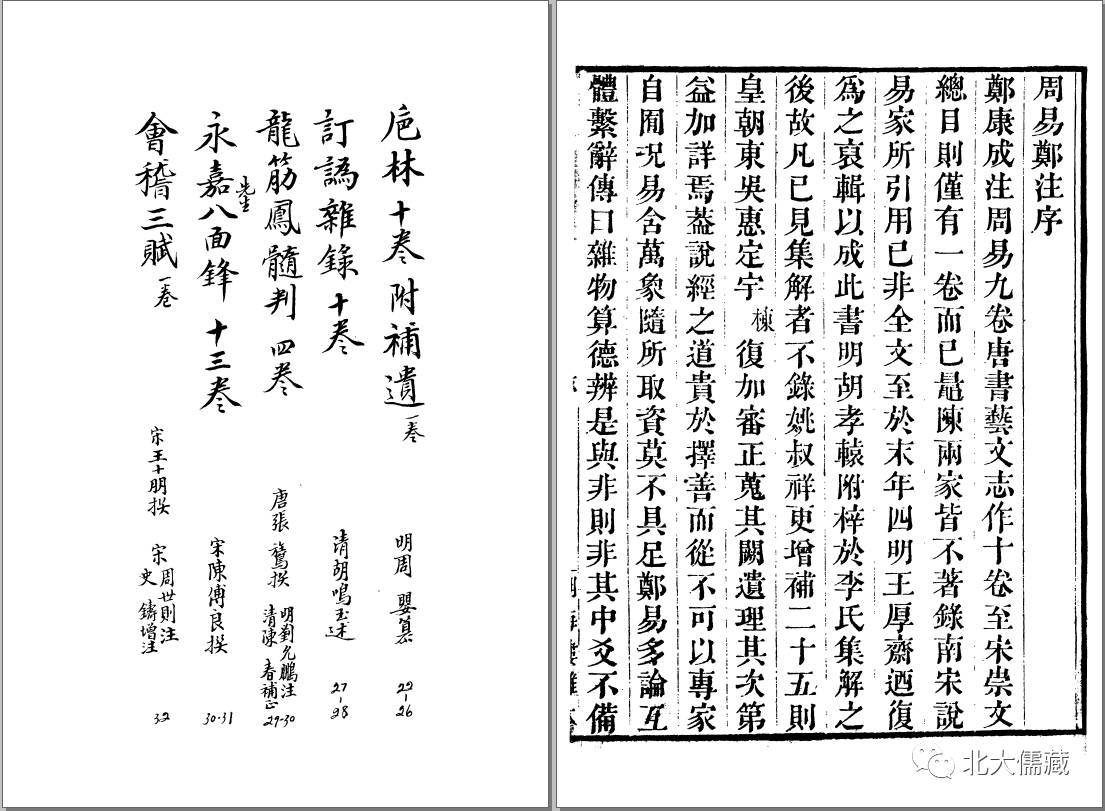 巵林十卷附補遺一卷 明周嬰纂 22-26
訂譌雜錄十卷 清胡鳴玉述 27-28
龍筋鳳髓判四卷 唐張鷟撰 明劉允鵬注 清陳春補正 29-30
永嘉先生八面鋒十三卷 宋陳傅良撰 30-31
會稽三賦一卷 宋王十朋撰 宋周世則注 史鑄增注 32
周易鄭注序
鄭康成注周易九卷唐書藝文志作十卷至宋崇文
總目則僅有一卷而已鼂陳兩家皆不著錄南宋說
易家所引用已非全文至於末年四明王厚齋迺復
爲之裒輯以成此書明胡孝轅附梓於李氏集解之
後故凡已見集解者不錄姚叔祥更增補二十五則
皇朝東吳惠定宇棟復加審正蒐其闕遺理其次第
益加詳焉葢說經之道貴於擇善而從不可以專家
自囿況易含萬象隨所取資莫不具足鄭易多論互
體繫辭傳曰雜物算德辨是與非則非其中爻不備
北大儒藏